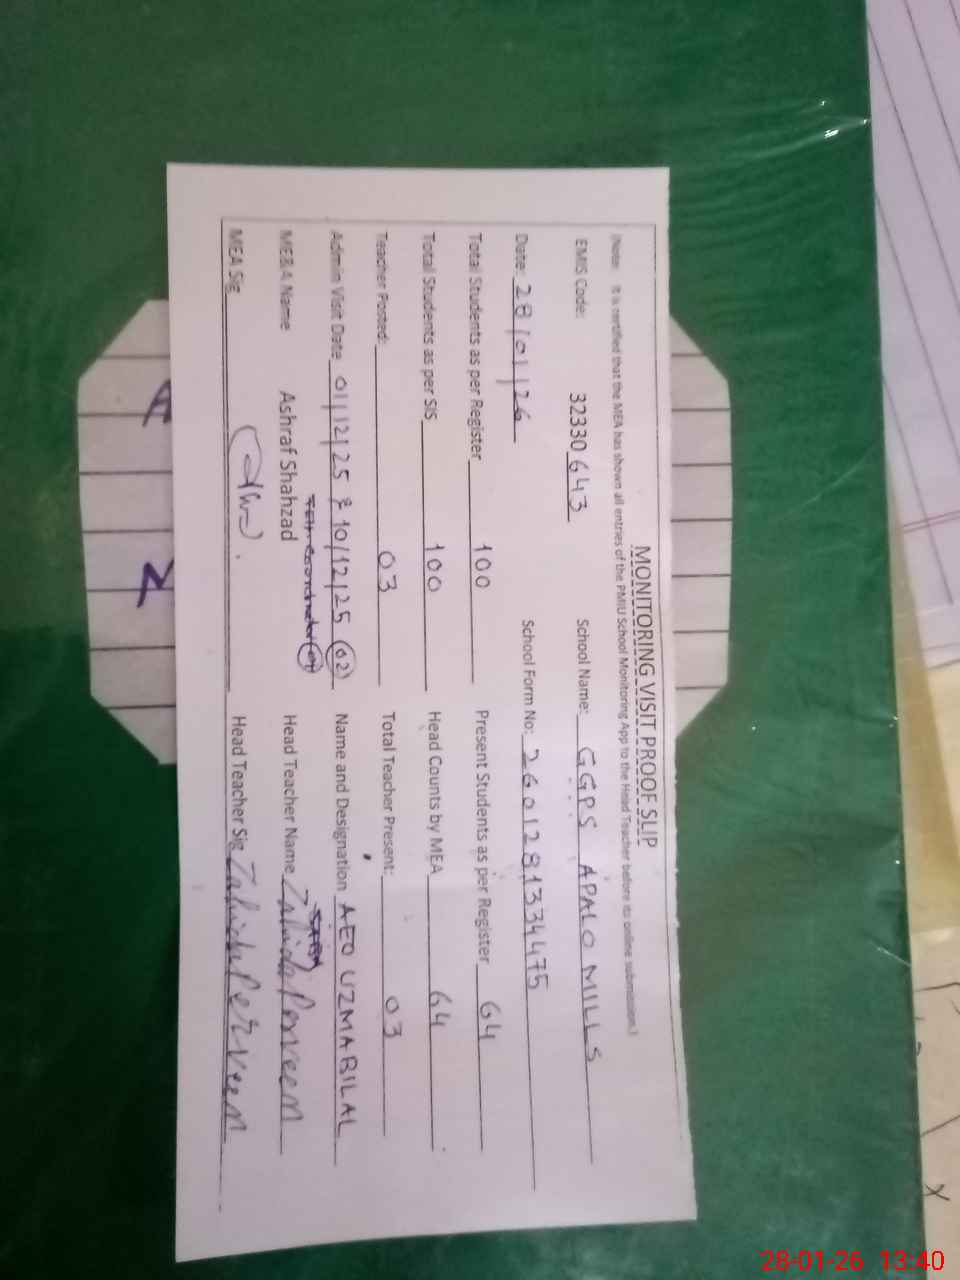 MONITORING VISIT PROOF SLIP
(Note: It is certified that the MEA has shown all entries of the PMIU School Monitoring App to the Head Teacher before its online submission.)
EMIS Code: 32330 643 School Name: GGPS APALO MILLS
Date: 28/01/26 School Form No: 2601281334475
Total Students as per Register 100 Present Students as per Register 64
Total Students as per SIS 100 Head Counts by MEA 64
Teacher Posted: 03 Total Teacher Present: 03
Admin Visit Date 01/12/25 & 10/12/25 (02) Name and Designation AEO UZMA BILAL
ME&A Name Ashraf Shahzad Head Teacher Name Zahida Perveen
MEA Sig Head Teacher Sig Zahida Perveen
28-01-26 13:40